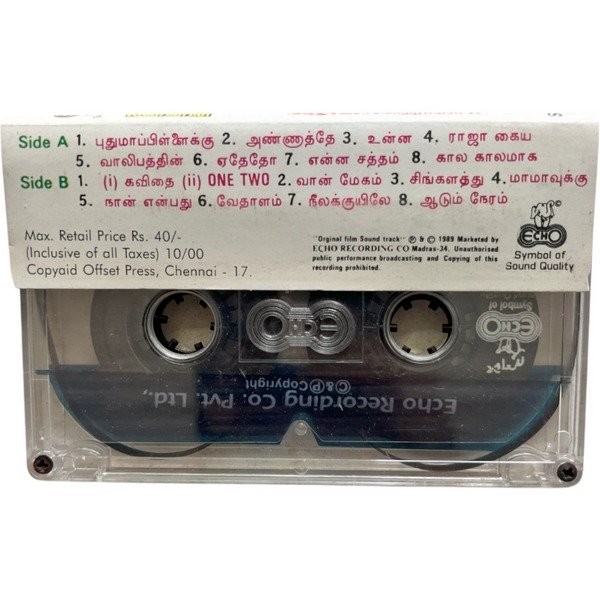 Side A 1. புதுமாப்பிள்ளைக்கு 2. அண்ணாத்தே 3. உன்ன 4. ராஜா கைய
5. வாலிபத்தின் 6. ஏதேதோ 7. என்ன சத்தம் 8. கால காலமாக
Side B 1. (i) கவிதை (ii) ONE TWO 2. வான் மேகம் 3. சிங்களத்து 4. மாமாவுக்கு
5. நான் என்பது 6. வேதாளம் 7. நீலக்குயிலே 8. ஆடும் நேரம்
Max. Retail Price Rs. 40/-
(Inclusive of all Taxes) 10/00
Copyaid Offset Press, Chennai - 17.
"Orginal film Sound track" ℗ & © 1989 Marketed by
ECHO RECORDING CO Madras-34. Unauthorised
public performance broadcasting and Copying of this
recording prohibited.
ECHO
Symbol of
Sound Quality
ECHO
Symbol of
©&℗Copyright
Echo Recording Co. Pvt. Ltd.,